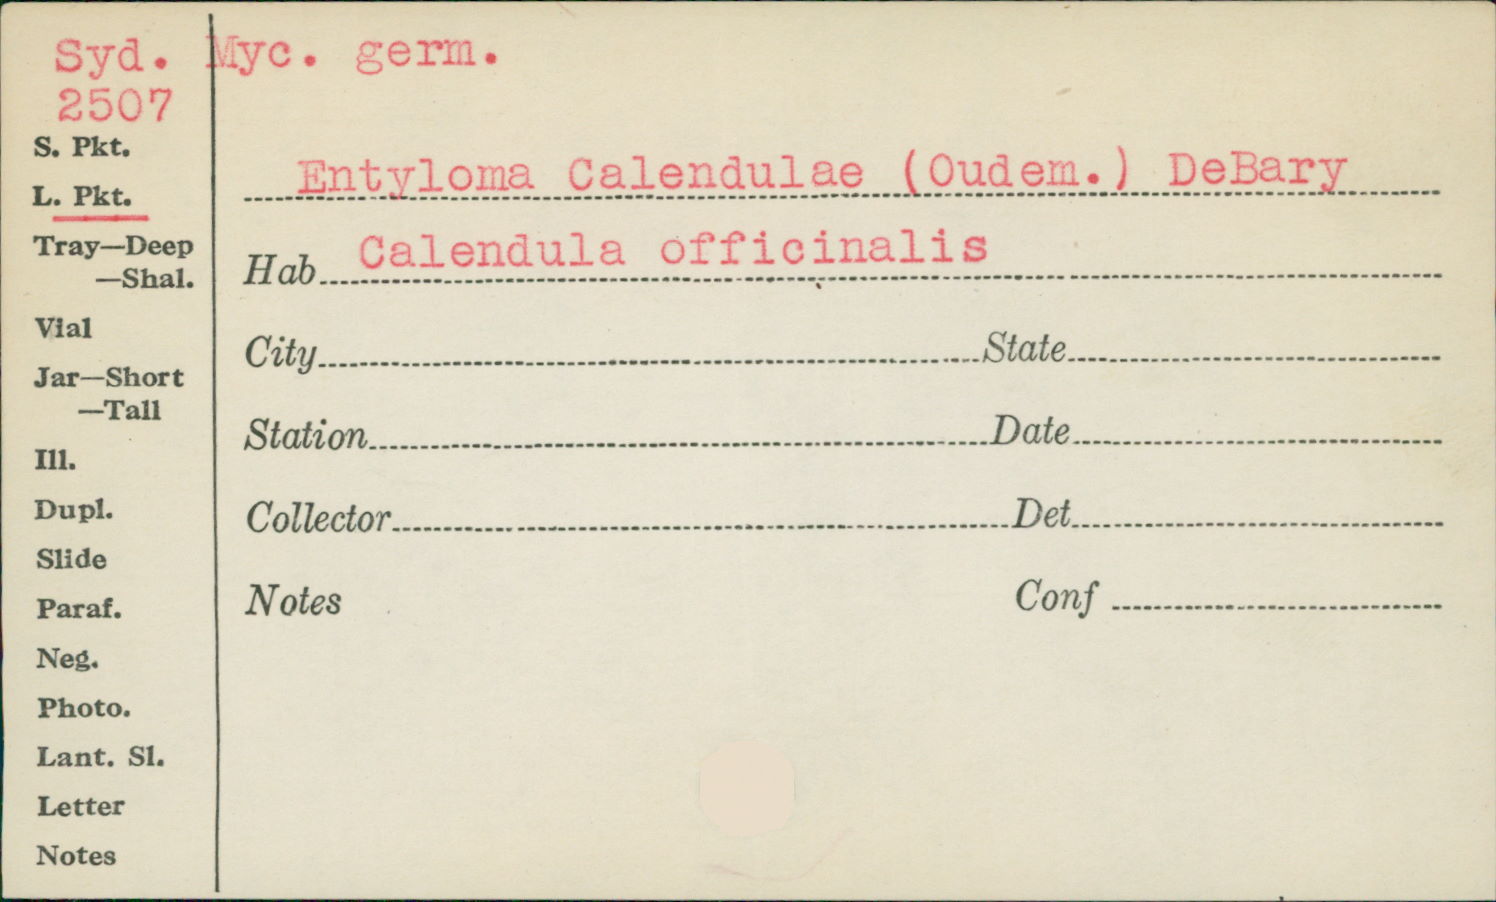 Syd. Myc. germ.
2507
S. Pkt.
L. Pkt.
Tray—Deep
—Shal.
Vial
Jar—Short
—Tall
Ill.
Dupl.
Slide
Paraf.
Neg.
Photo.
Lant. Sl.
Letter
Notes
Entyloma Calendulae (Oudem.) DeBary
Hab Calendula officinalis
City State
Station Date
Collector Det
Notes Conf